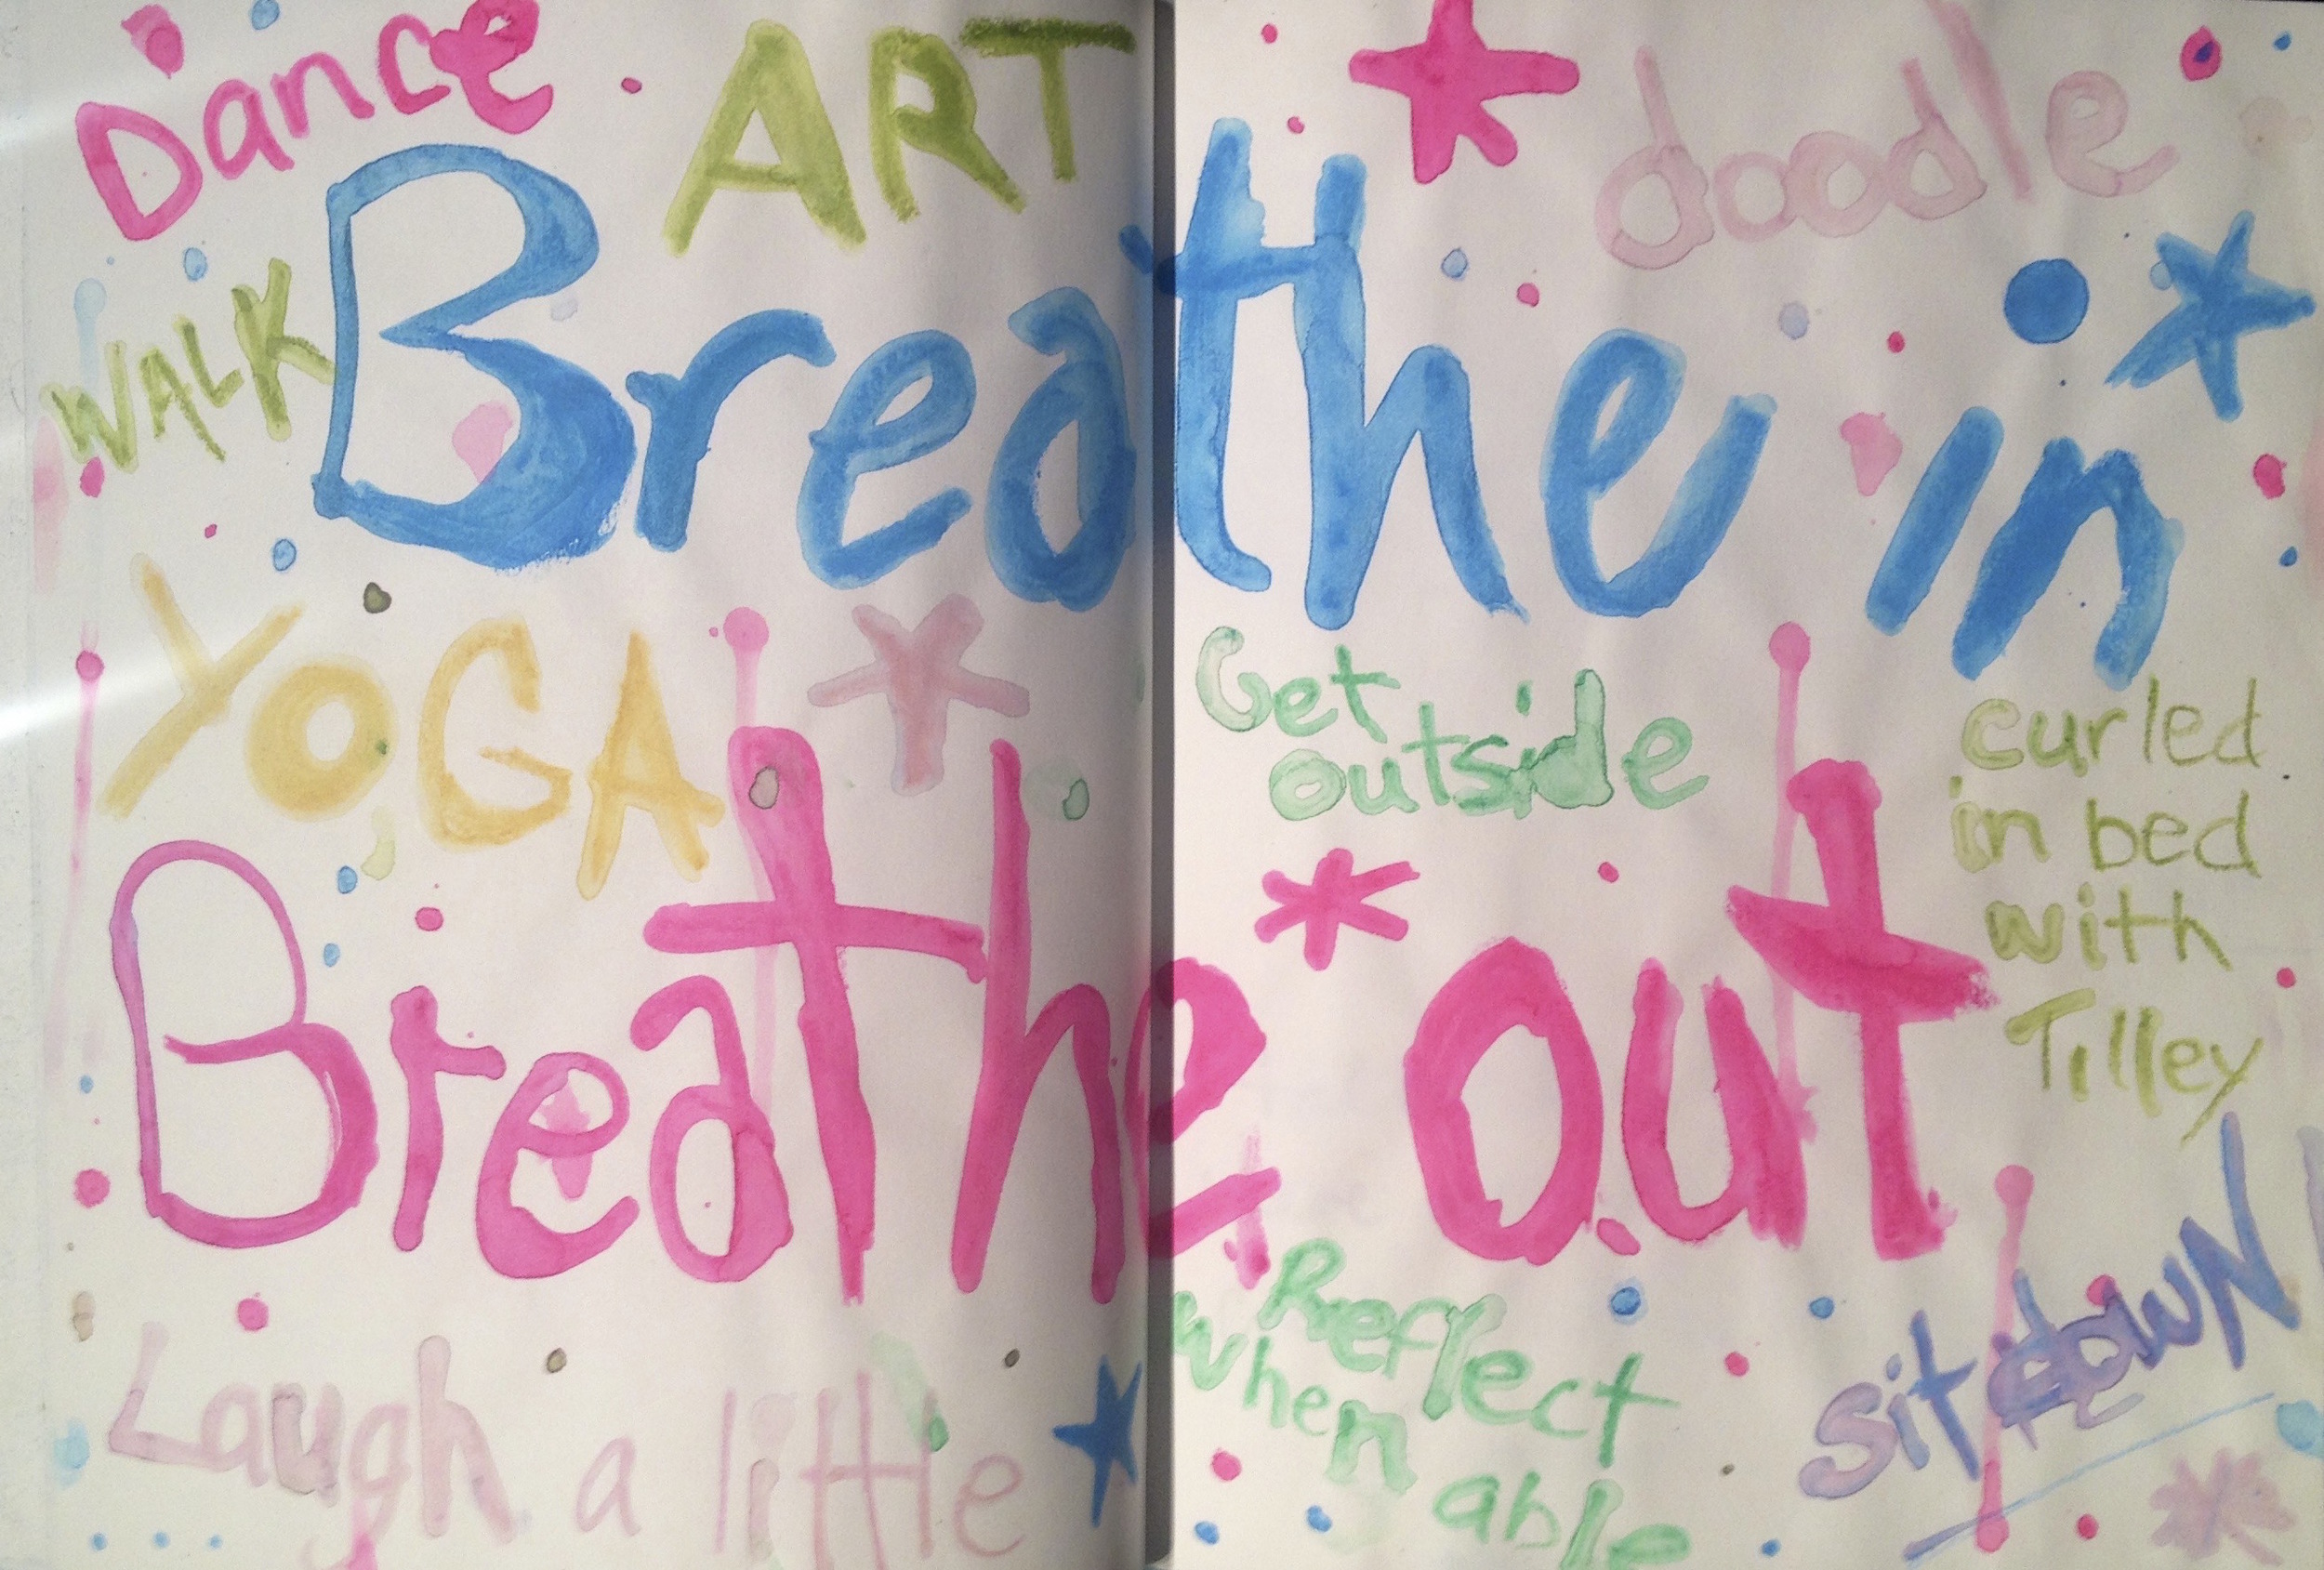 Dance
ART
doodle
WALK
Breathe in
YOGA
Get
outside
curled
in bed
with
Tilley
Breathe out
Laugh a little
Reflect
when
able
sit down